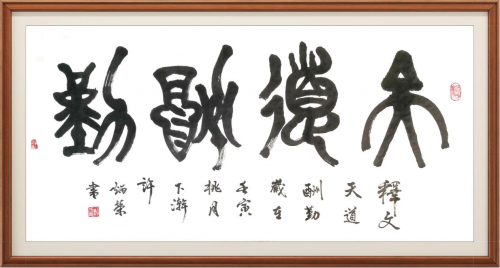 天道酬勤
釋文
天道
酬勤
歲在
壬寅
桃月
下澣
許
榮
書